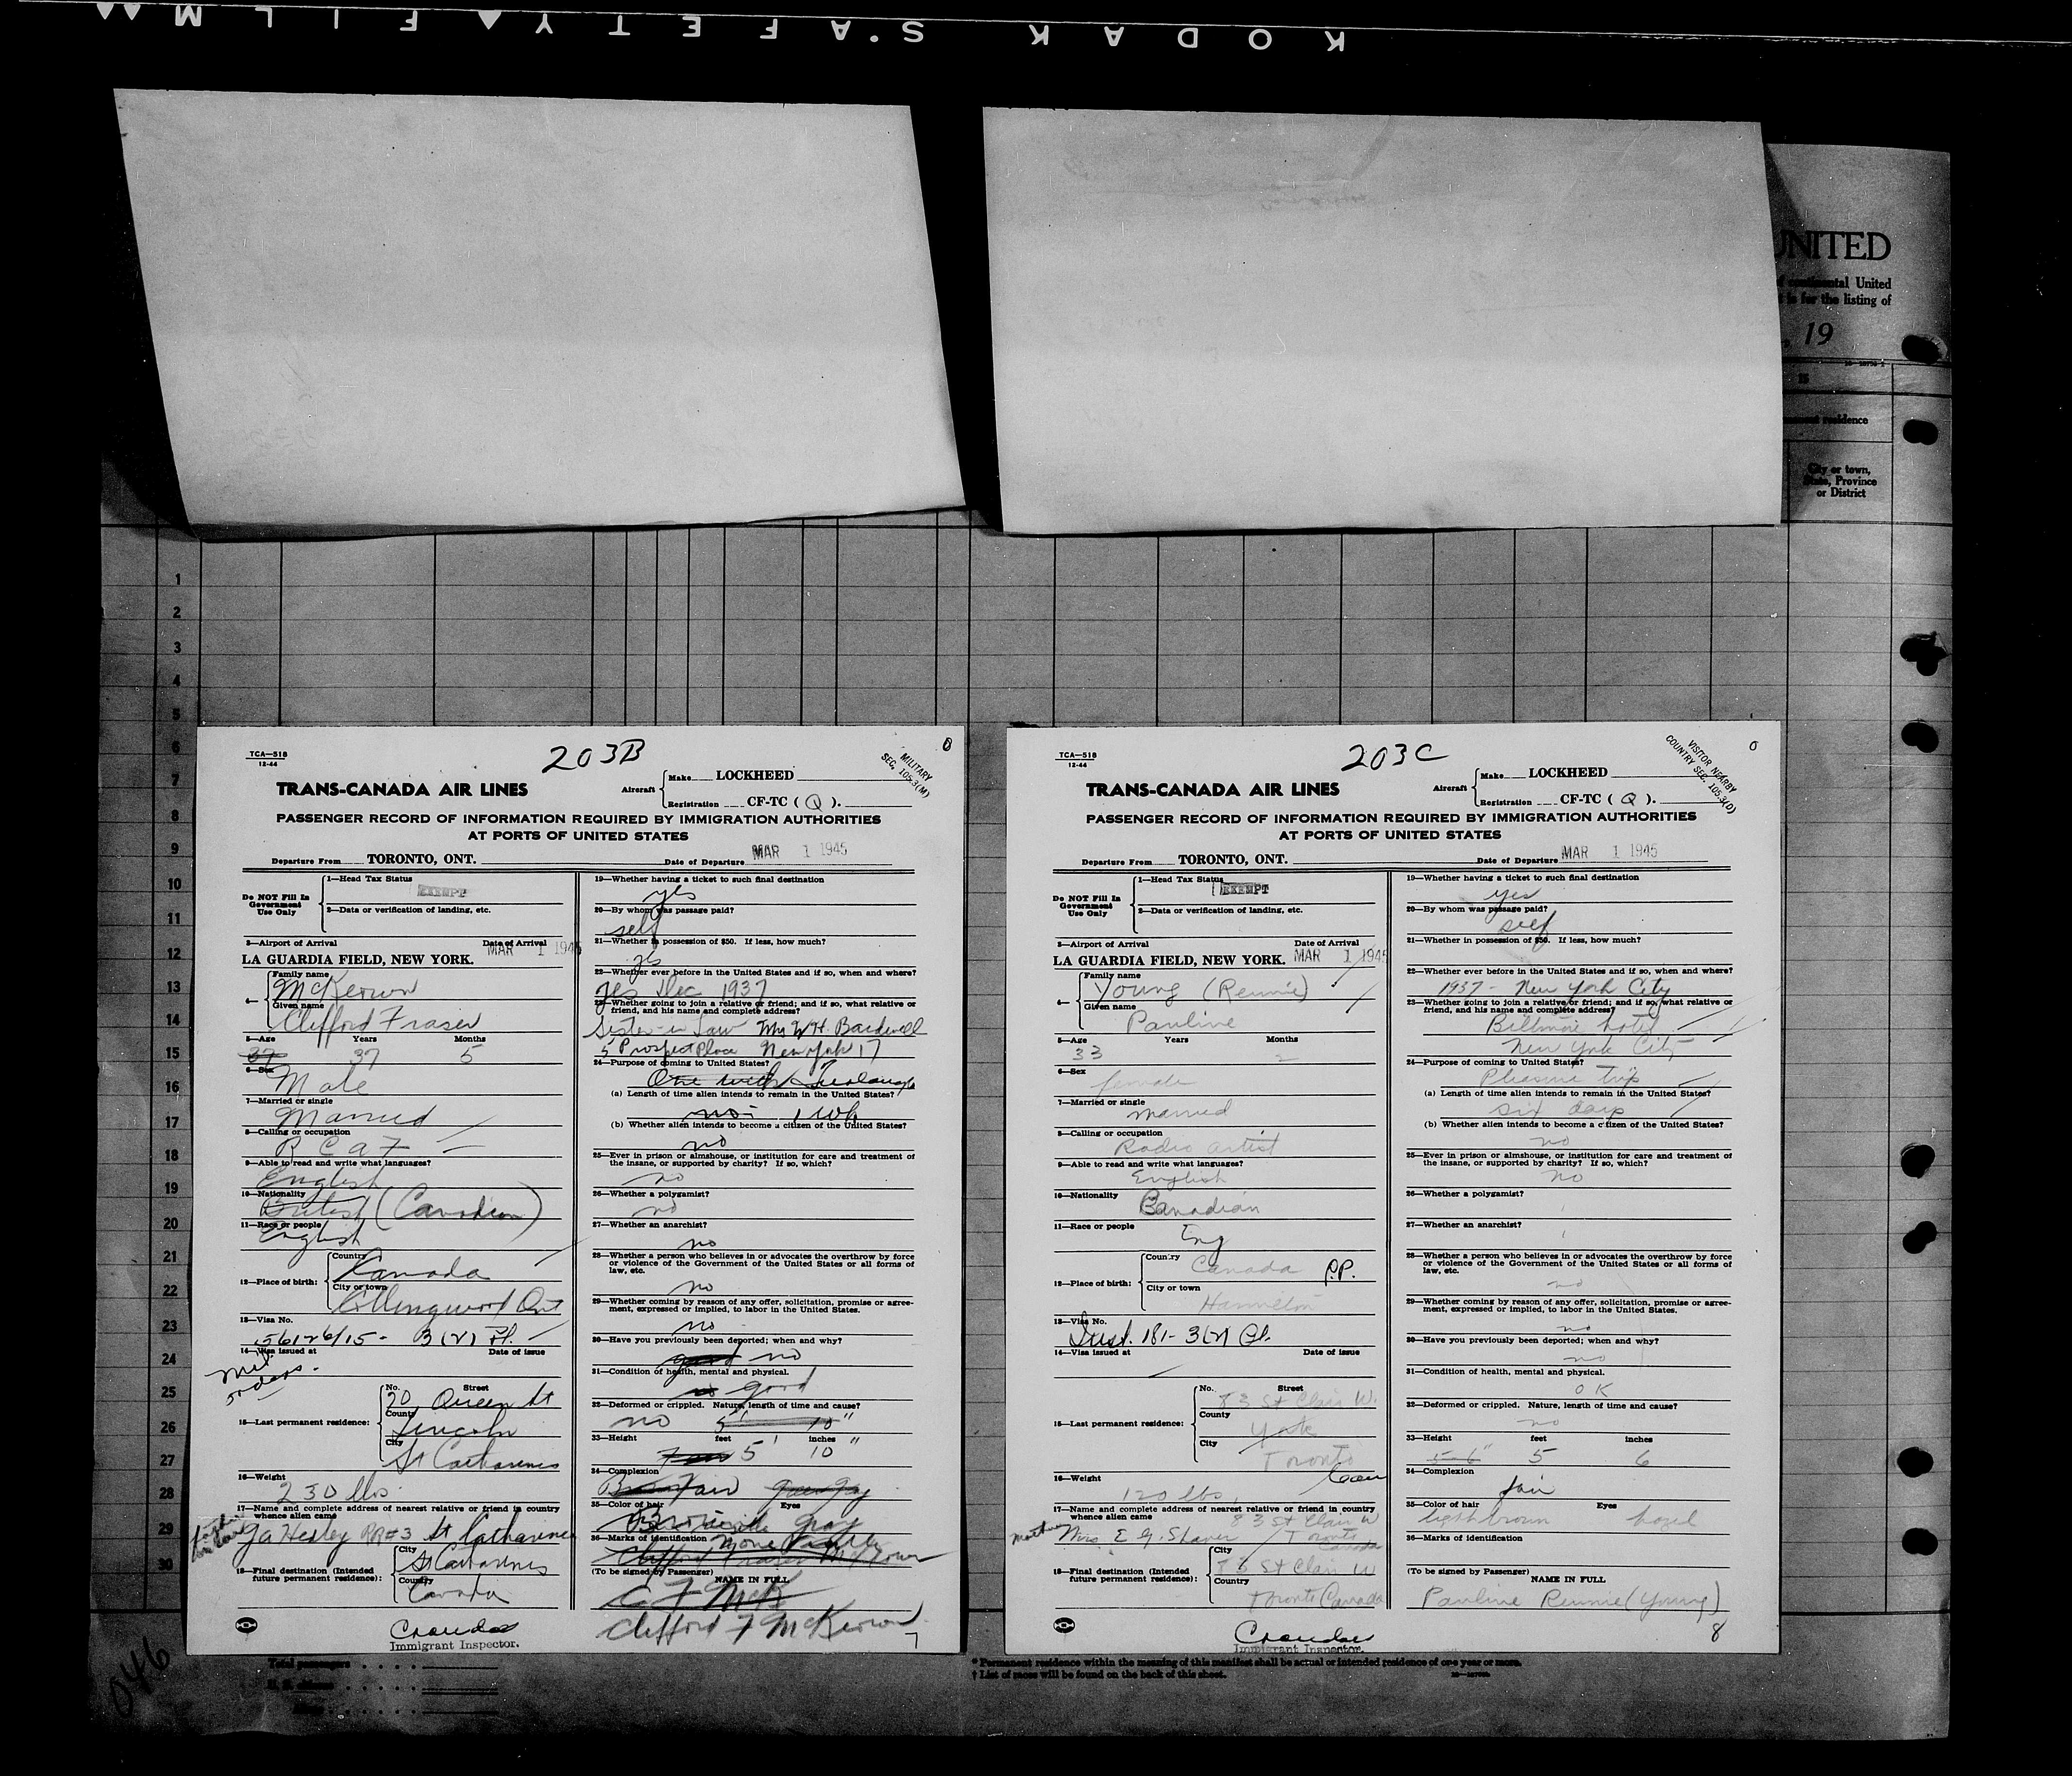 KODAK S'AFETY FILM
UNITED
continental United
is for the listing of
19
15
residence
City or town,
State, Province
or District
1
2
3
4
5
6
7
8
9
10
11
12
13
14
15
16
17
18
19
20
21
22
23
24
25
26
27
28
29
30
046
TCA—518
12-44
203B
0
MILITARY
SEC. 105.3(M)
Aircraft
Make LOCKHEED
Registration CF-TC ( Q ).
TRANS-CANADA AIR LINES
PASSENGER RECORD OF INFORMATION REQUIRED BY IMMIGRATION AUTHORITIES
AT PORTS OF UNITED STATES
Departure From TORONTO, ONT. Date of Departure MAR 1 1945
Do NOT Fill In
Government
Use Only
1—Head Tax Status
EXEMPT
2—Data or verification of landing, etc.
3—Airport of Arrival Date of Arrival
LA GUARDIA FIELD, NEW YORK. MAR 1 1945
4— Family name
McKeown
Given name
Clifford Fraser
5—Age Years Months
37 37 5
6—Sex
Male
7—Married or single
Married
8—Calling or occupation
RCAF
9—Able to read and write what languages?
English
10—Nationality
British (Canadian)
11—Race or people
English
12—Place of birth:
Country
Canada
City or town
Collingwood Ont
13—Visa No.
56126/15 - 3(2) Pt.
14—Visa issued at Date of issue
Mil. orders.
15—Last permanent residence:
No. Street
20 Queen St
County
Lincoln
City
St Catharines
16—Weight
230 lbs.
17—Name and complete address of nearest relative or friend in country
whence alien came
father in law
RR#3 St Catharines
18—Final destination (Intended
future permanent residence):
City
St Catharines
Country
Canada
Immigrant Inspector.
19—Whether having a ticket to such final destination
yes
20—By whom was passage paid?
self
21—Whether in possession of $50. If less, how much?
yes
22—Whether ever before in the United States and if so, when and where?
yes Dec 1937
23—Whether going to join a relative or friend; and if so, what relative or
friend, and his name and complete address?
Sister-in Law Mrs W.H. Bardwell
5 Prospect Place New York 17
24—Purpose of coming to United States?
One week
(a) Length of time alien intends to remain in the United States?
no - 1 wk
(b) Whether alien intends to become a citizen of the United States?
no
25—Ever in prison or almshouse, or institution for care and treatment of
the insane, or supported by charity? If so, which?
no
26—Whether a polygamist?
no
27—Whether an anarchist?
no
28—Whether a person who believes in or advocates the overthrow by force
or violence of the Government of the United States or all forms of
law, etc.
no
29—Whether coming by reason of any offer, solicitation, promise or agree-
ment, expressed or implied, to labor in the United States.
no
30—Have you previously been deported; when and why?
good no
31—Condition of health, mental and physical.
no good
32—Deformed or crippled. Nature, length of time and cause?
no 5' 10"
33—Height feet inches
5' 10"
34—Complexion
Fair
35—Color of hair Eyes
gray
36—Marks of identification
none
Clifford Fraser McKeown
(To be signed by Passenger) NAME IN FULL
C F McK
Clifford F McKeown
7
TCA—518
12-44
203C
0
VISITOR NEARBY
COUNTRY SEC. 105.3(D)
Aircraft
Make LOCKHEED
Registration CF-TC ( Q ).
TRANS-CANADA AIR LINES
PASSENGER RECORD OF INFORMATION REQUIRED BY IMMIGRATION AUTHORITIES
AT PORTS OF UNITED STATES
Departure From TORONTO, ONT. Date of Departure MAR 1 1945
Do NOT Fill In
Government
Use Only
1—Head Tax Status
EXEMPT
2—Data or verification of landing, etc.
3—Airport of Arrival Date of Arrival
LA GUARDIA FIELD, NEW YORK. MAR 1 1945
4— Family name
Young (Rennie)
Given name
Pauline
5—Age Years Months
33 2
6—Sex
female
7—Married or single
married
8—Calling or occupation
Radio artist
9—Able to read and write what languages?
English
10—Nationality
Canadian
11—Race or people
Eng
12—Place of birth:
Country
Canada P.P.
City or town
Hamilton
13—Visa No.
Inst. 181- 3(2) Pt.
14—Visa issued at Date of issue
15—Last permanent residence:
No. Street
83 St Clair W.
County
York
City
Toronto
Can
16—Weight
120 lbs.
17—Name and complete address of nearest relative or friend in country
whence alien came
83 St Clair W
mother Mrs. E G. Shaver Toronto
Canada
18—Final destination (Intended
future permanent residence):
City
83 St Clair W
Country
Toronto Canada
Immigrant Inspector.
19—Whether having a ticket to such final destination
yes
20—By whom was passage paid?
self
21—Whether in possession of $50. If less, how much?
22—Whether ever before in the United States and if so, when and where?
1937 - New York City
23—Whether going to join a relative or friend; and if so, what relative or
friend, and his name and complete address?
Biltmore hotel
New York City
24—Purpose of coming to United States?
Pleasure trip
(a) Length of time alien intends to remain in the United States?
six days
(b) Whether alien intends to become a citizen of the United States?
no
25—Ever in prison or almshouse, or institution for care and treatment of
the insane, or supported by charity? If so, which?
no
26—Whether a polygamist?
27—Whether an anarchist?
28—Whether a person who believes in or advocates the overthrow by force
or violence of the Government of the United States or all forms of
law, etc.
no
29—Whether coming by reason of any offer, solicitation, promise or agree-
ment, expressed or implied, to labor in the United States.
no
30—Have you previously been deported; when and why?
no
31—Condition of health, mental and physical.
OK
32—Deformed or crippled. Nature, length of time and cause?
no
33—Height feet inches
5-6" 5 6
34—Complexion
fair
35—Color of hair Eyes
light brown hazel
36—Marks of identification
(To be signed by Passenger) NAME IN FULL
Pauline Rennie (Young)
8
Total passengers
* Permanent residence within the meaning of this manifest shall be actual or intended residence of one year or more.
† List of races will be found on the back of this sheet.